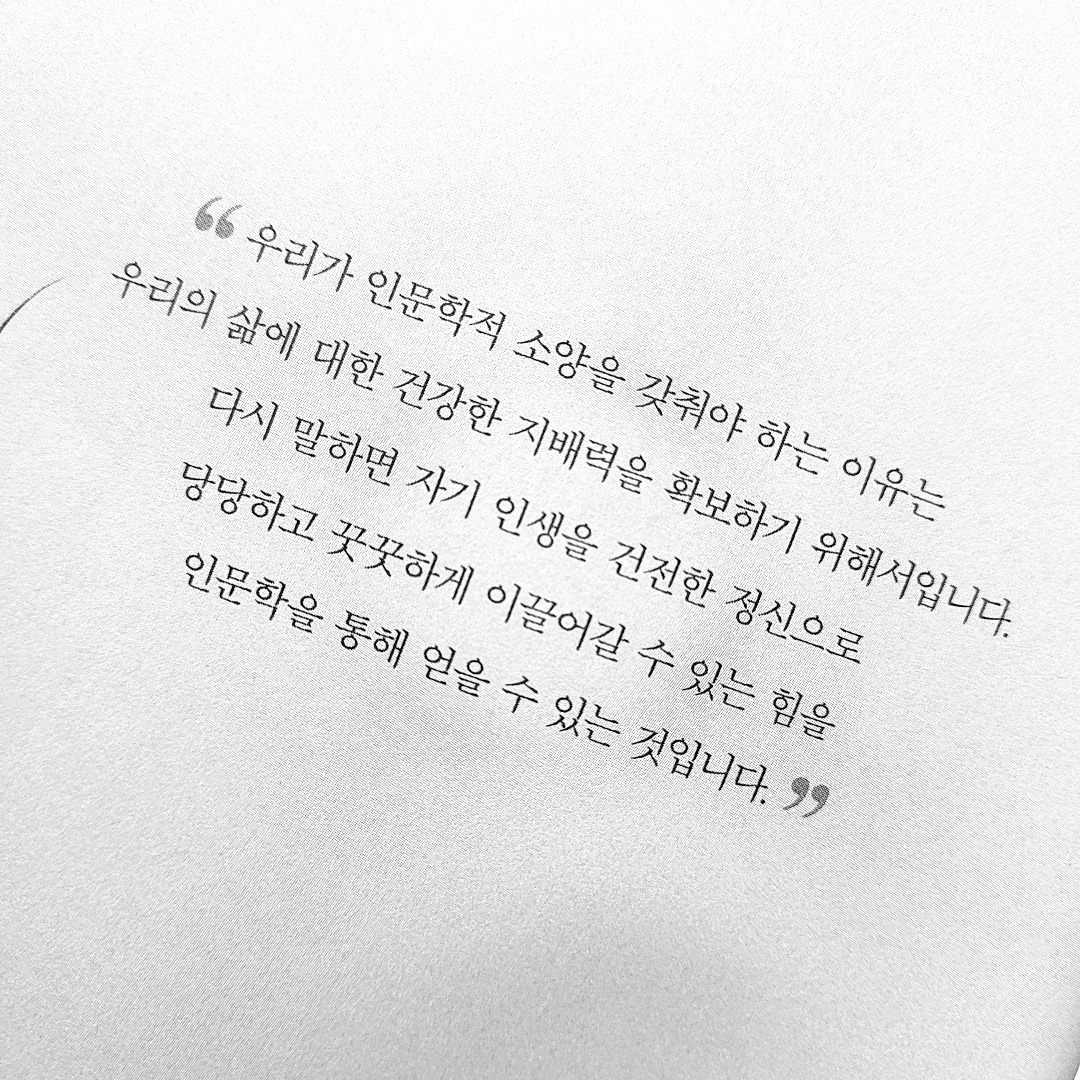 “ 우리가 인문학적 소양을 갖춰야 하는 이유는
우리의 삶에 대한 건강한 지배력을 확보하기 위해서입니다.
다시 말하면 자기 인생을 건전한 정신으로
당당하고 꿋꿋하게 이끌어갈 수 있는 힘을
인문학을 통해 얻을 수 있는 것입니다. ”